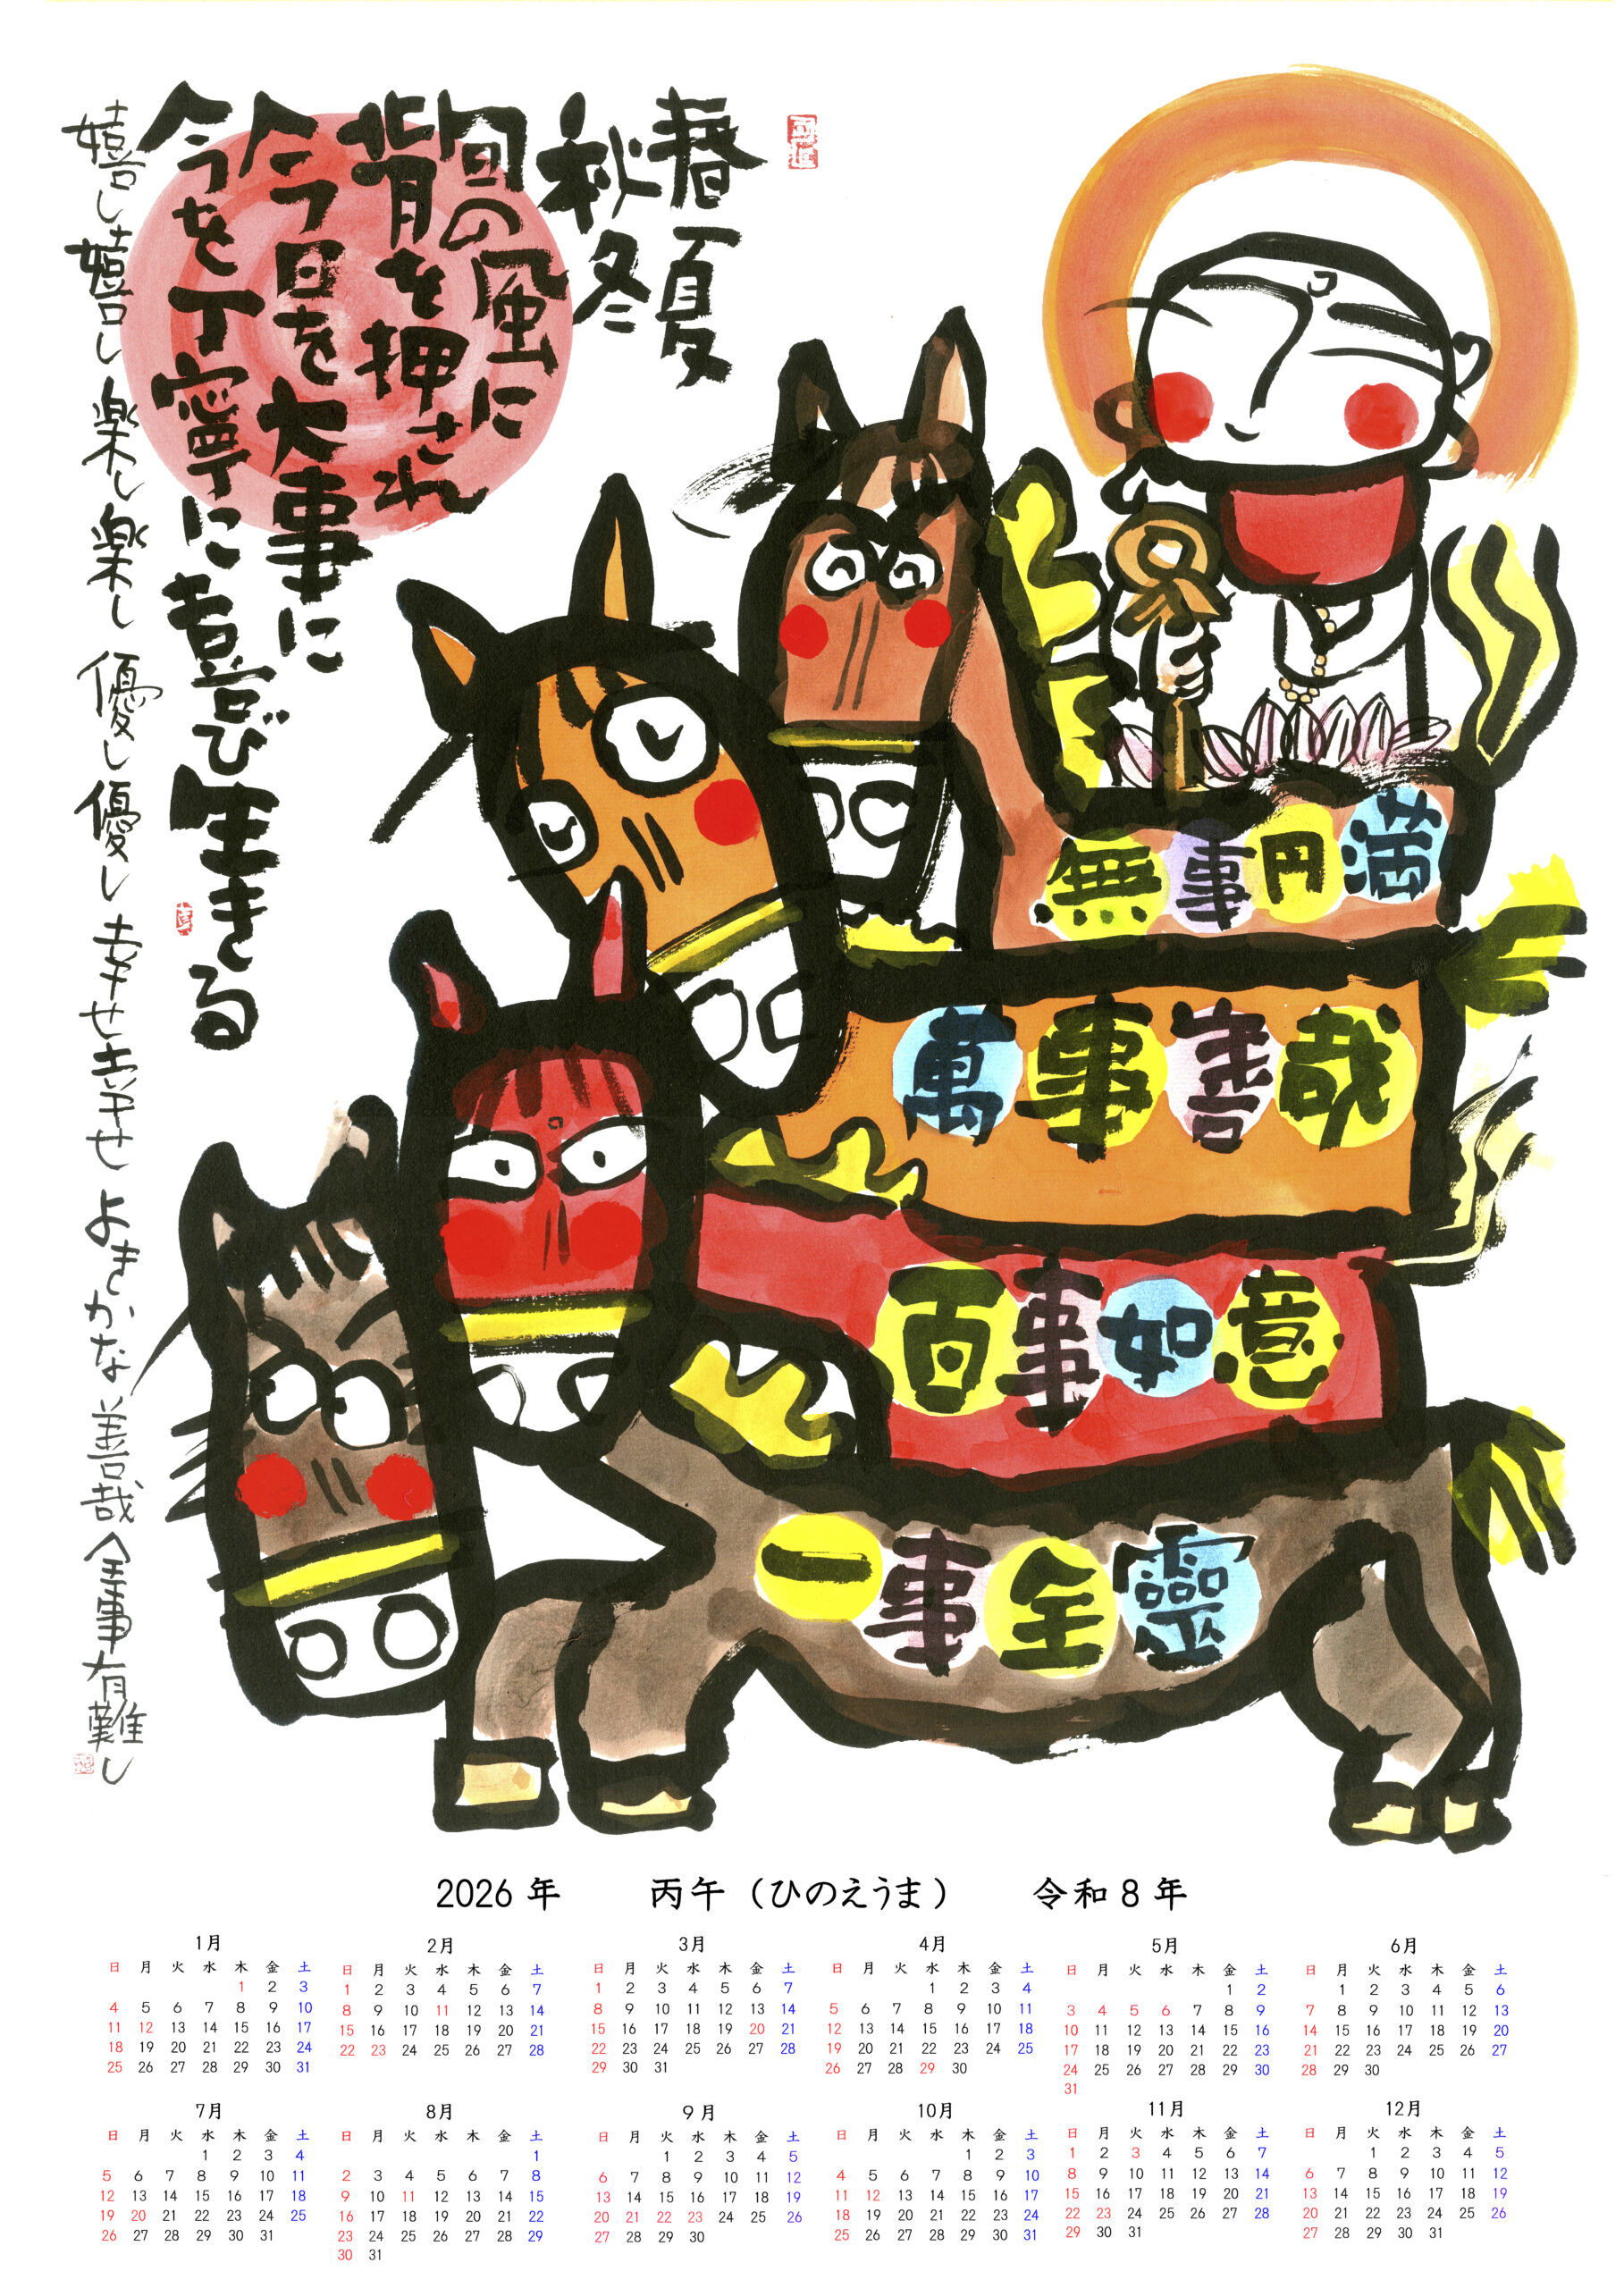 春夏
秋冬
旬の風に
背を押され
今日を大事に
今を丁寧に喜び生きる
嬉し嬉し 楽し楽し 優し優し 幸せ幸せ よきかな 善哉 全事有難し
無事円満
萬事善哉
百事如意
一事全靈
2026年 丙午（ひのえうま） 令和8年
1月
日 月 火 水 木 金 土
1 2 3
4 5 6 7 8 9 10
11 12 13 14 15 16 17
18 19 20 21 22 23 24
25 26 27 28 29 30 31
2月
日 月 火 水 木 金 土
1 2 3 4 5 6 7
8 9 10 11 12 13 14
15 16 17 18 19 20 21
22 23 24 25 26 27 28
3月
日 月 火 水 木 金 土
1 2 3 4 5 6 7
8 9 10 11 12 13 14
15 16 17 18 19 20 21
22 23 24 25 26 27 28
29 30 31
4月
日 月 火 水 木 金 土
1 2 3 4
5 6 7 8 9 10 11
12 13 14 15 16 17 18
19 20 21 22 23 24 25
26 27 28 29 30
5月
日 月 火 水 木 金 土
1 2
3 4 5 6 7 8 9
10 11 12 13 14 15 16
17 18 19 20 21 22 23
24 25 26 27 28 29 30
31
6月
日 月 火 水 木 金 土
1 2 3 4 5 6
7 8 9 10 11 12 13
14 15 16 17 18 19 20
21 22 23 24 25 26 27
28 29 30
7月
日 月 火 水 木 金 土
1 2 3 4
5 6 7 8 9 10 11
12 13 14 15 16 17 18
19 20 21 22 23 24 25
26 27 28 29 30 31
8月
日 月 火 水 木 金 土
1
2 3 4 5 6 7 8
9 10 11 12 13 14 15
16 17 18 19 20 21 22
23 24 25 26 27 28 29
30 31
9月
日 月 火 水 木 金 土
1 2 3 4 5
6 7 8 9 10 11 12
13 14 15 16 17 18 19
20 21 22 23 24 25 26
27 28 29 30
10月
日 月 火 水 木 金 土
1 2 3
4 5 6 7 8 9 10
11 12 13 14 15 16 17
18 19 20 21 22 23 24
25 26 27 28 29 30 31
11月
日 月 火 水 木 金 土
1 2 3 4 5 6 7
8 9 10 11 12 13 14
15 16 17 18 19 20 21
22 23 24 25 26 27 28
29 30 31
12月
日 月 火 水 木 金 土
1 2 3 4 5
6 7 8 9 10 11 12
13 14 15 16 17 18 19
20 21 22 23 24 25 26
27 28 29 30 31